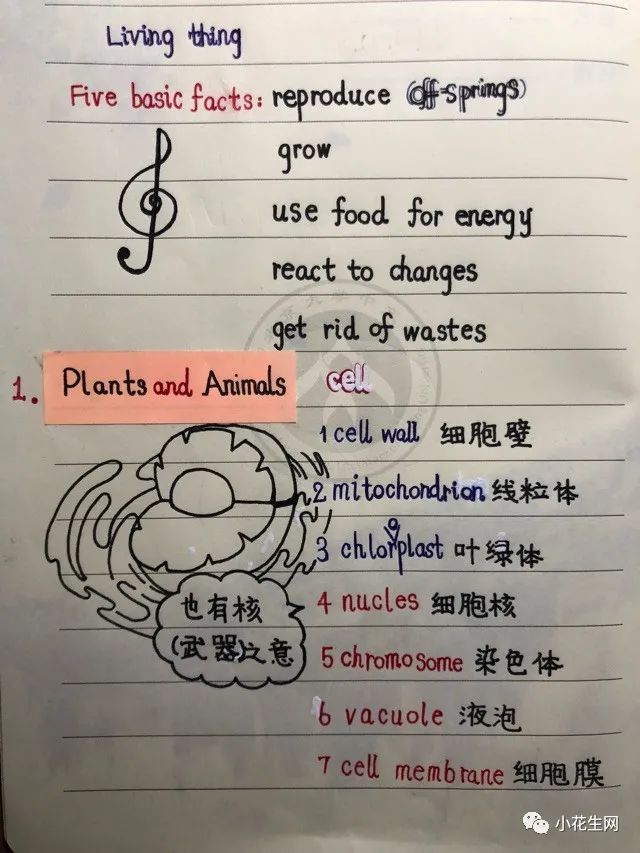 Living thing
Five basic facts: reproduce (off-springs)
grow
use food for energy
react to changes
get rid of wastes
1. Plants and Animals cell
1 cell wall 细胞壁
2 mitochondrion 线粒体
3 chloroplast 叶绿体
4 nucles 细胞核
5 chromosome 染色体
6 vacuole 液泡
7 cell membrane 细胞膜
也有核
(武器)之意
小花生网